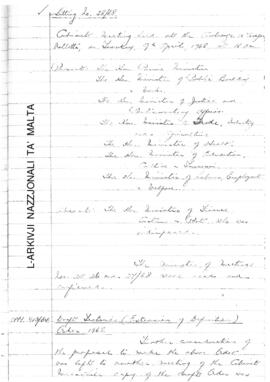 Sitting No. 28/68
Cabinet Meeting held at the Auberge
Valletta, on 9th April, 1968
Present: The Hon. Prime Minister
The Hon. Minister of Public Building
& Works.
The Hon. Minister of Justice and
Parliamentary Affairs
The Hon. Minister of Trade, Industry
and Agriculture
The Hon. Minister of Health.
The Hon. Minister of Education,
Culture & Tourism.
The Hon. Minister of Labour, Employment
& Welfare.
Absent: The Hon. Minister of Finance
Customs & Port, who was
indisposed.
The Minutes of Meeting
No. 27/68 were read and
confirmed.
(Extension of Definition)
Order 1968.
Further consideration of
the proposal to make the above Order
was left to another meeting of the Cabinet.
copy of the draft Order was
L-ARKIVJI NAZZJONALI TA' MALTA